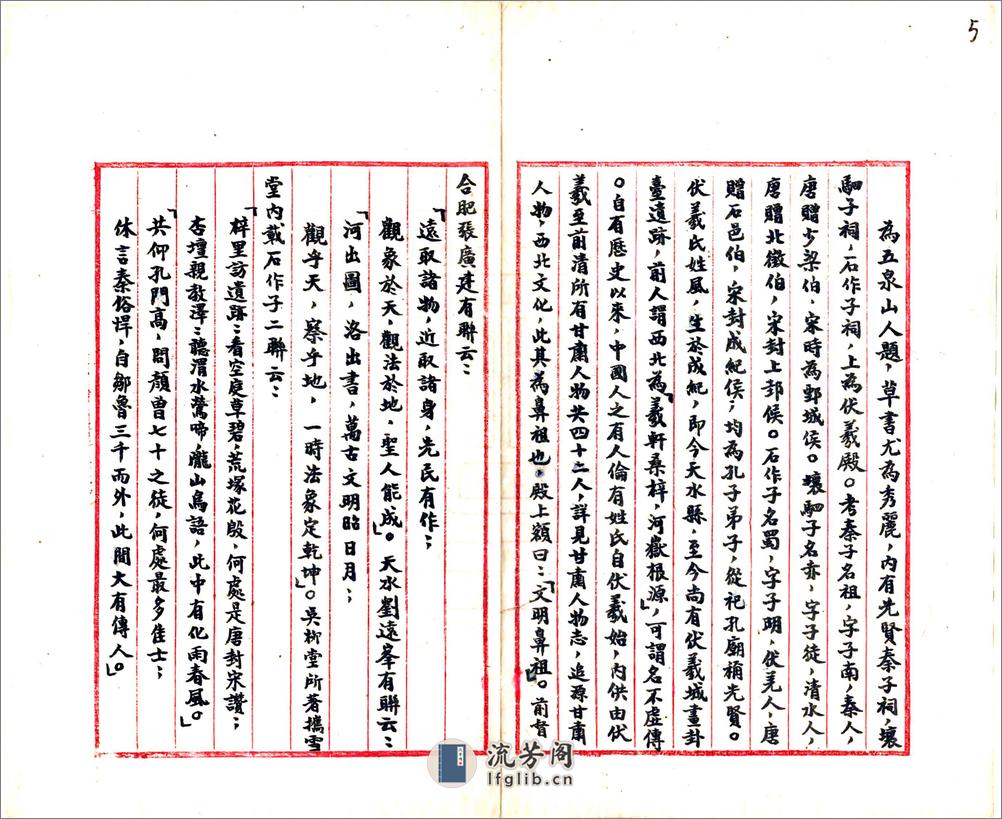 5
為五泉山人題，草書尤為秀麗，內有先賢秦子祠，壤
駟子祠，石作子祠，上為伏羲殿。考秦子名祖，字子南，秦人，
唐贈少梁伯，宋時為鄄城侯。壤駟子名赤，字子徒，清水人，
唐贈北徵伯，宋封上邽侯。石作子名蜀，字子明，伏羌人，唐
贈石邑伯，宋封成紀侯；均為孔子弟子，從祀孔廟稱先賢。
伏羲氏姓風，生於成紀，即今天水縣，至今尚有伏羲城畫卦
臺遺跡，前人謂西北為「羲軒桑梓，河嶽根源」，可謂名不虛傳
。自有歷史以來，中國人之有人倫有姓氏自伏羲始，內供由伏
羲至前清所有甘肅人物共四十二人，詳見甘肅人物志，追源甘肅
人物，西北文化，此其為鼻祖也，殿上額曰：「文明鼻祖」。前督
合肥張廣建有聯云：
「遠取諸物，近取諸身，先民有作；
觀象於天，觀法於地，聖人能成」。天水劉遠峯有聯云：
「河出圖，洛出書，萬古文明昭日月；
觀乎天，察乎地，一時法象定乾坤」。吳柳堂所著攜雪
堂內載石作子二聯云：
「梓里訪遺跡：看空庭草碧，荒塚花殷，何處是唐封宋讚；
杏壇親教澤：聽渭水鶯啼，隴山鳥語，此中有化雨春風」。
「共仰孔門高，問顏曾七十之徒，何處最多佳士；
休言秦俗悍，自鄒魯三千而外，此間大有傳人」。
流芳阁
lfglib.cn